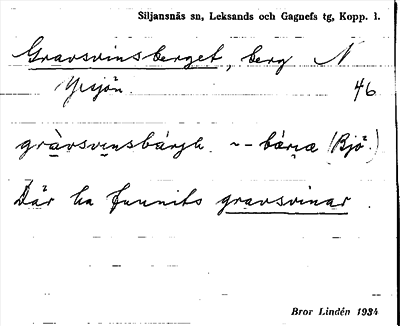 Siljansnäs sn, Leksands och Gagnefs tg, Kopp. l.
Gravsvinsberget, berg N
Ysjön. 46
gràvsvinsbárjɩ. ~- bárjæ (Bjö.)
Där ha funnits gravsvinar.
Bror Lindén 1934